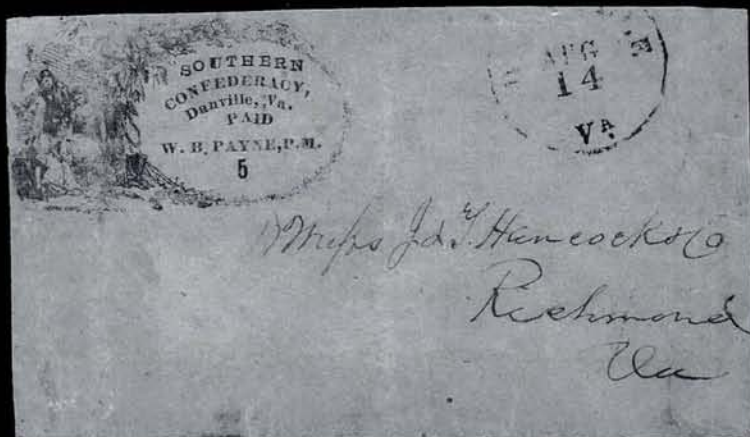 SOUTHERN
CONFEDERACY,
Danville, Va.
PAID
W. B. PAYNE, P.M.
5
E
AUG
14
VA
Mesſs J & T. Hancocks Co
Richmond
Va